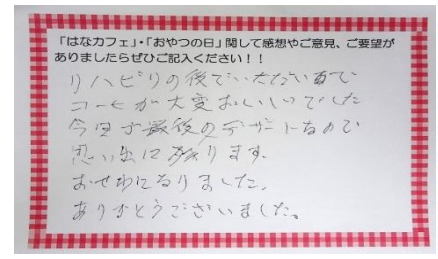 「はなカフェ」・「おやつの日」関して感想やご意見、ご要望が
ありましたらぜひご記入ください！！
リハビリの後でいただいたので
コーヒーが大変おいしいでした
今日が最後のデザートなので
思い出に残ります。
おせわになりました。
ありがとうございました。